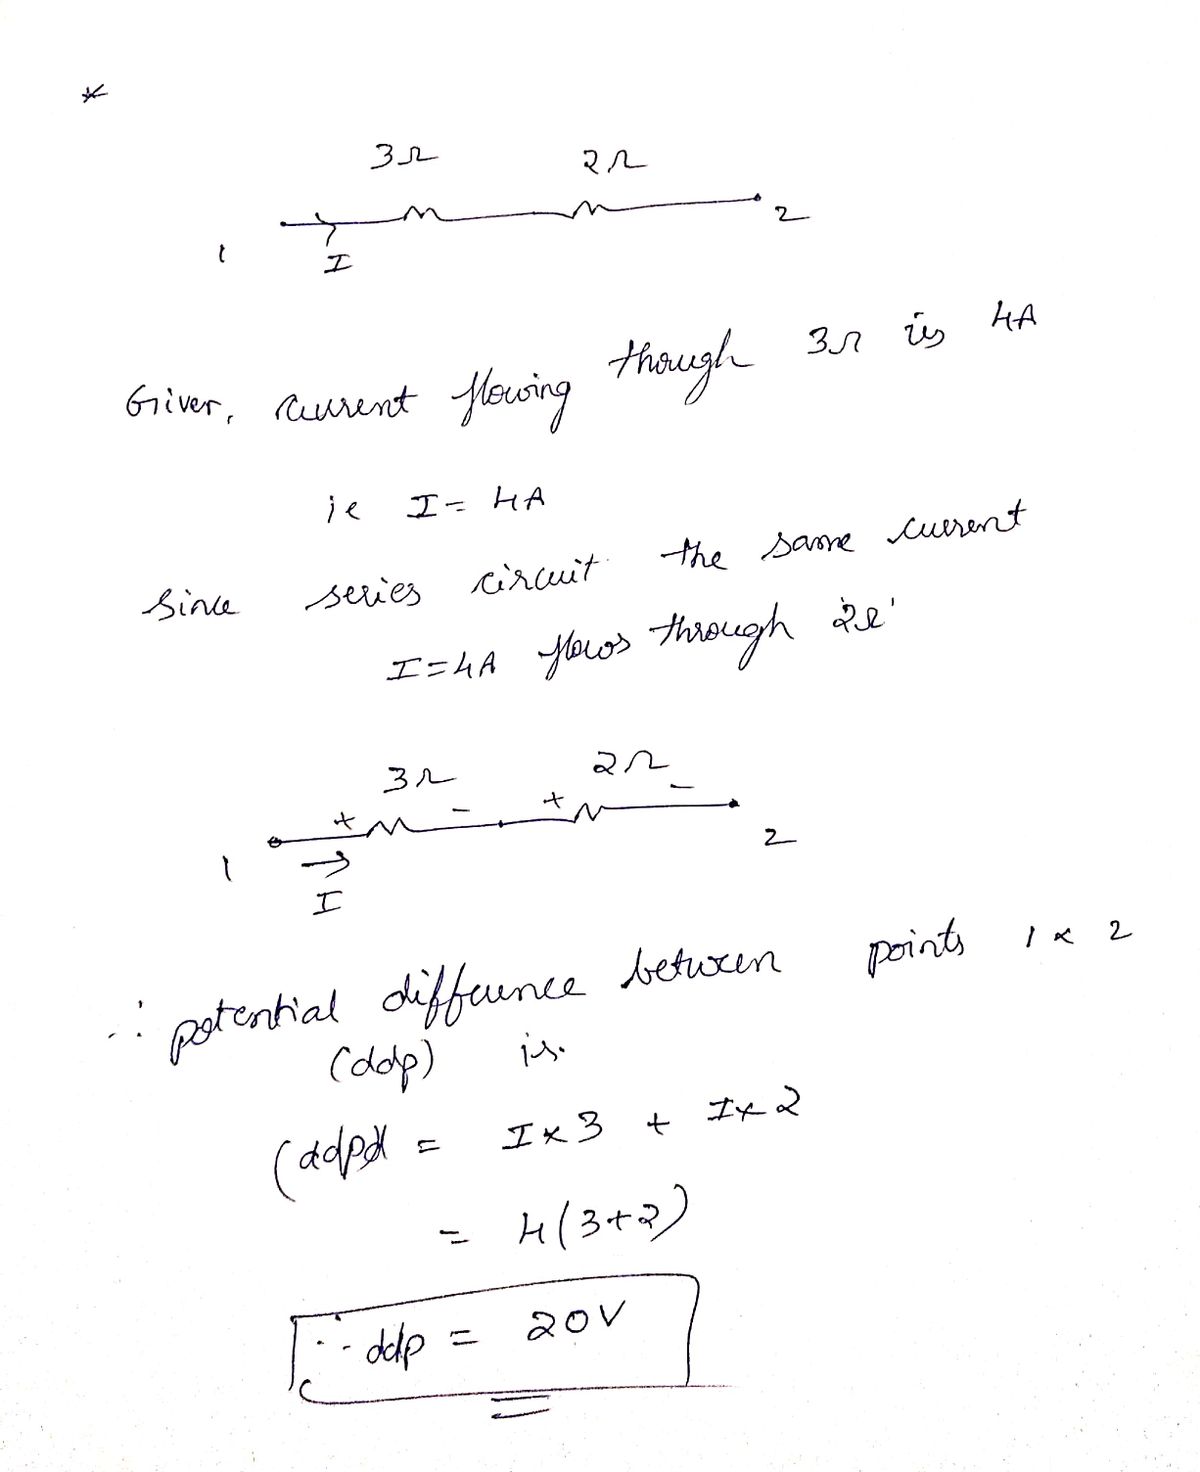 *
3Ω 2Ω
1 I 2
Given, current flowing though 3Ω is 4A
ie I = 4A
Since series circuit the same current
I=4A flows through '2Ω'
3Ω 2Ω
+ - + -
1 I 2
∴ potential difference between points 1 & 2
(ddp) is.
(ddp) = I×3 + I×2
= 4(3+2)
∴ ddp = 20V